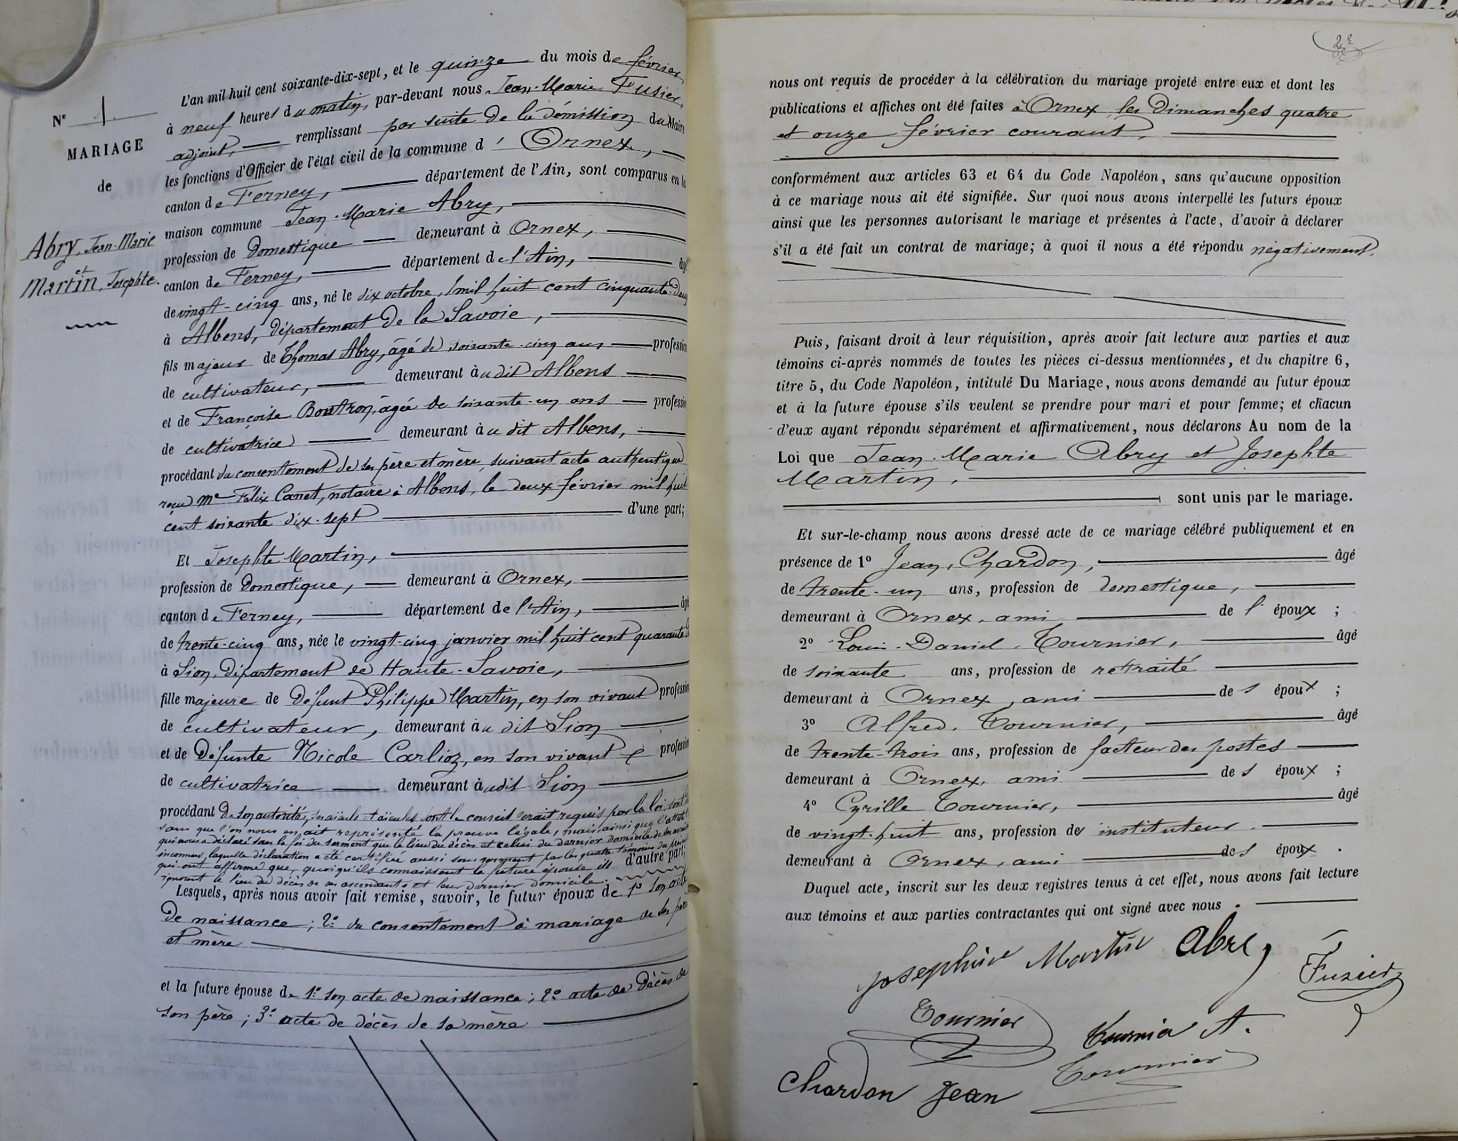 Nº 1
MARIAGE
de
Abry, Jean-Marie
et
Martin, Josephte.
L'an mil huit cent soixante-dix-sept, et le quinze du mois de février
à neuf heures du matin, par-devant nous Jean-Marie Fusier,
adjoint, remplissant par suite de la démission du Maire
les fonctions d'Officier de l'état civil de la commune d' Ornex,
canton de Ferney, département de l'Ain, sont comparus en la
maison commune Jean-Marie Abry,
profession de domestique demeurant à Ornex,
canton de Ferney, département de l'Ain, âgé
de vingt-cinq ans, né le dix octobre, mil huit cent cinquante-deux
à Albens, département de la Savoie,
fils majeur de Thomas Abry, âgé de soixante-cinq ans profession
de cultivateur, demeurant à udit Albens
et de Françoise Boutron, âgée de soixante-un ans profession
de cultivatrice demeurant à u dit Albens,
procédant du consentement de ses père et mère, suivant acte authentique
reçu Me Félix Canet, notaire à Albens, le deux février mil huit
cent soixante dix-sept d'une part;
Et Josephte Martin,
profession de domestique, demeurant à Ornex,
canton de Ferney, département de l'Ain, âgé
de trente-cinq ans, née le vingt-cinq janvier mil huit cent quarante
à Sion, département de Haute-Savoie,
fille majeure de défunt Philippe Martin, en son vivant profession
de cultivateur, demeurant à u dit Sion
et de défunte Nicole Carlioz, en son vivant profession
de cultivatrice demeurant à udit Sion
procédant de son autorité, ses aïeuls dont le conseil serait requis par la loi sont
sans que l'on nous en ait représenté la preuve légale, mais ainsi que l'atteste
qui nous a déclaré sous la foi du serment que le lieu du décès et celui du dernier domicile de ses
inconnus, laquelle déclaration a été certifiée aussi sous serment par les quatre témoins du présent
qui ont affirmé que, quoiqu'ils connaissent la future épouse, ils d'autre part;
ignorent le lieu du décès de ses ascendants et leur dernier domicile.
Lesquels, après nous avoir fait remise, savoir, le futur époux de 1º son acte
de naissance; 2º du consentement à mariage de ses père
et mère
et la future épouse de 1º son acte de naissance; 2º acte de décès de
son père; 3º acte de décès de sa mère
nous ont requis de procéder à la célébration du mariage projeté entre eux et dont les
publications et affiches ont été faites à Ornex les Dimanches quatre
et onze février courant,
conformément aux articles 63 et 64 du Code Napoléon, sans qu'aucune opposition
à ce mariage nous ait été signifiée. Sur quoi nous avons interpellé les futurs époux
ainsi que les personnes autorisant le mariage et présentes à l'acte, d'avoir à déclarer
s'il a été fait un contrat de mariage; à quoi il nous a été répondu négativement.
Puis, faisant droit à leur réquisition, après avoir fait lecture aux parties et aux
témoins ci-après nommés de toutes les pièces ci-dessus mentionnées, et du chapitre 6,
titre 5, du Code Napoléon, intitulé Du Mariage, nous avons demandé au futur époux
et à la future épouse s'ils veulent se prendre pour mari et pour femme; et chacun
d'eux ayant répondu séparément et affirmativement, nous déclarons Au nom de la
Loi que Jean-Marie Abry et Josephte
Martin,
sont unis par le mariage.
Et sur-le-champ nous avons dressé acte de ce mariage célébré publiquement et en
présence de 1º Jean, Chardon, âgé
de trente-un ans, profession de domestique,
demeurant à Ornex, ami de l' époux ;
2º Louis-Daniel, Tournier, âgé
de soixante ans, profession de retraité
demeurant à Ornex, ami de s époux ;
3º Alfred, Tournier, âgé
de trente-trois ans, profession de facteur des postes
demeurant à Ornex, ami de s époux ;
4º Cyrille Tournier, âgé
de vingt-huit ans, profession de instituteur.
demeurant à Ornex, ami de s époux .
Duquel acte, inscrit sur les deux registres tenus à cet effet, nous avons fait lecture
aux témoins et aux parties contractantes qui ont signé avec nous .
josephine Martin Abry Fusier
Tournier Tournier A.
Chardon Jean Tournier